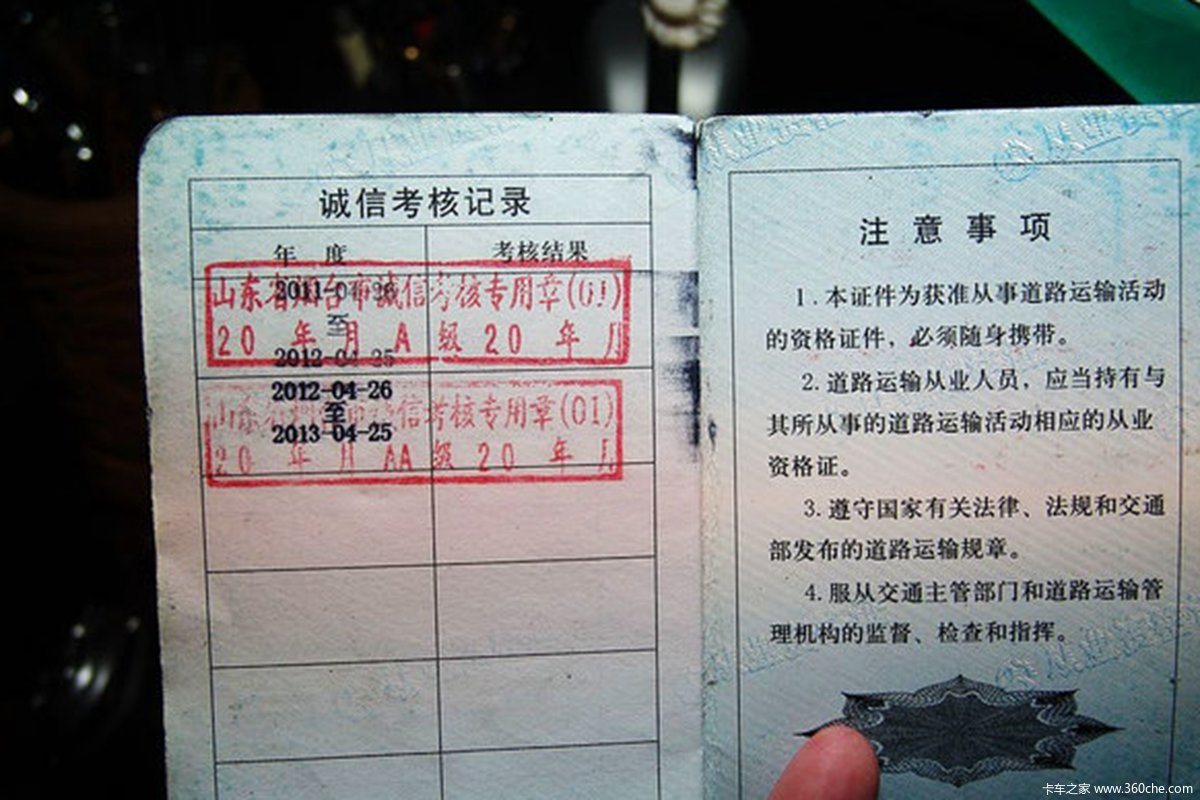 诚信考核记录
年 度
考核结果
山东省烟台市诚信考核专用章(01)
2011-04-26
至
20 年 月 A 级 20 年 月
2012-04-25
2012-04-26
山东省烟台市诚信考核专用章(01)
至
2013-04-25
20 年 月 AA 级 20 年 月
注意事项
1.本证件为获准从事道路运输活动
的资格证件，必须随身携带。
2.道路运输从业人员，应当持有与
其所从事的道路运输活动相应的从业
资格证。
3.遵守国家有关法律、法规和交通
部发布的道路运输规章。
4.服从交通主管部门和道路运输管
理机构的监督、检查和指挥。
卡车之家 www.360che.com